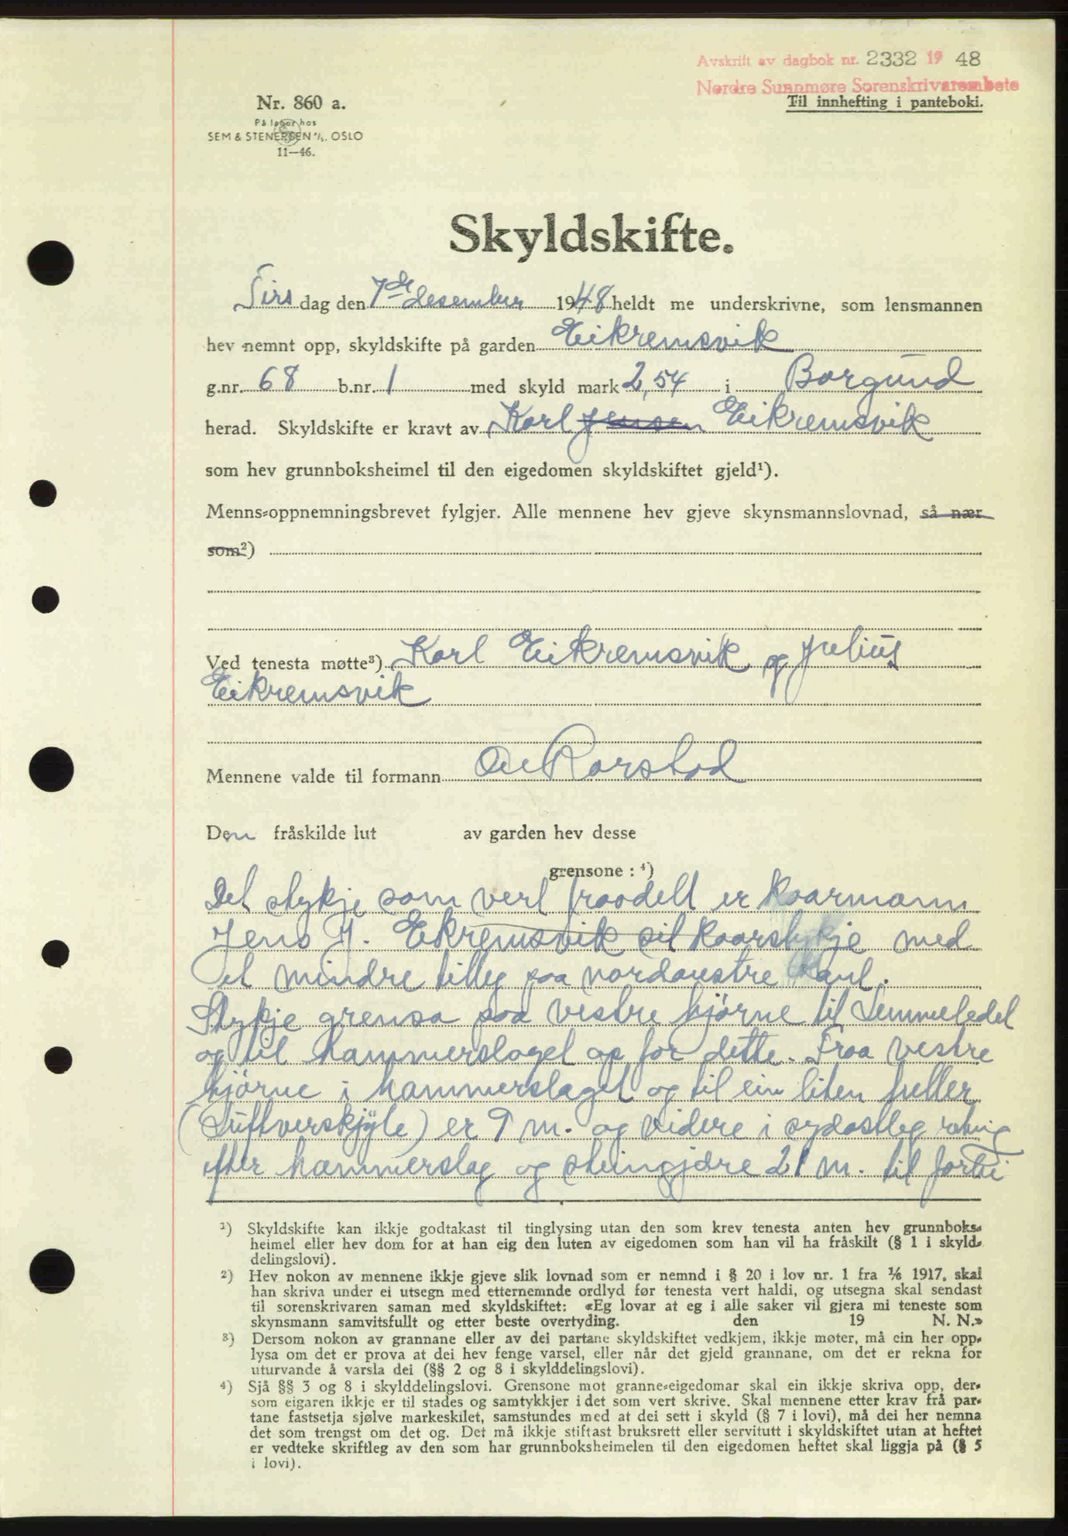 Avskrift av dagbok nr. 2332 19 48
Nordre Sunnmøre Sorenskrivarembete
Nr. 860 a.
Til innhefting i panteboki.
På lager hos
SEM & STENERSEN A/S. OSLO
11—46.
Skyldskifte.
Tirsdag den 7de desember 1948 heldt me underskrivne, som lensmannen
hev nemnt opp, skyldskifte på garden Eikremsvik
g.nr. 68 b.nr. 1 med skyld mark 2,54 i Borgund
herad. Skyldskifte er kravt av Karl Jensen Eikremsvik
som hev grunnboksheimel til den eigedomen skyldskiftet gjeld¹).
Menns-oppnemningsbrevet fylgjer. Alle mennene hev gjeve skynsmannslovnad, så nær
som²)
Ved tenesta møtte³) Karl Eikremsvik og Julius
Eikremsvik
Mennene valde til formann
Den fråskilde lut av garden hev desse
grensone : ⁴)
Det stykje som vert fraadelt er kaarmann
Jens J. Eikremsvik sit kaarstykje med
et mindre tilleg paa nordaustre kant.
Stykje grensa paa vestre hjörne til
og til hammerslaget op for dette. Fraa vestre
hjörne i hammerslaget og til ein liten heller
er 9 m. og videre i sydostleg retning
efter hammerslag og steingjdre 21 m. til
¹) Skyldskifte kan ikkje godtakast til tinglysing utan den som krev tenesta anten hev grunnboks-
heimel eller hev dom for at han eig den luten av eigedomen som han vil ha fråskilt (§ 1 i skyld-
delingslovi).
²) Hev nokon av mennene ikkje gjeve slik lovnad som er nemnd i § 20 i lov nr. 1 fra 1/6 1917, skal
han skriva under ei utsegn med etternemnde ordlyd før tenesta vert haldi, og utsegna skal sendast
til sorenskrivaren saman med skyldskiftet: «Eg lovar at eg i alle saker vil gjera mi teneste som
skynsmann samvitsfullt og etter beste overtyding. den 19 N. N.»
³) Dersom nokon av grannane eller av dei partane skyldskiftet vedkjem, ikkje møter, må ein her opp-
lysa om det er prova at dei hev fenge varsel, eller når det gjeld grannane, om det er rekna for
uturvande å varsla dei (§§ 2 og 8 i skylddelingslovi).
⁴) Sjå §§ 3 og 8 i skylddelingslovi. Grensone mot granne-eigedomar skal ein ikkje skriva opp, der-
som eigaren ikkje er til stades og samtykkjer i det som vert skrive. Skal mennene etter krav frå par-
tane fastsetja sjølve markeskilet, samstundes med at dei sett i skyld (§ 7 i lovi), må dei her nemna
det som trengst om det og. Det må ikkje stiftast bruksrett eller servitutt i skyldskiftet utan at heftet
er vedteke skriftleg av den som har grunnboksheimelen til den eigedomen heftet skal liggja på (§ 5
i lovi).